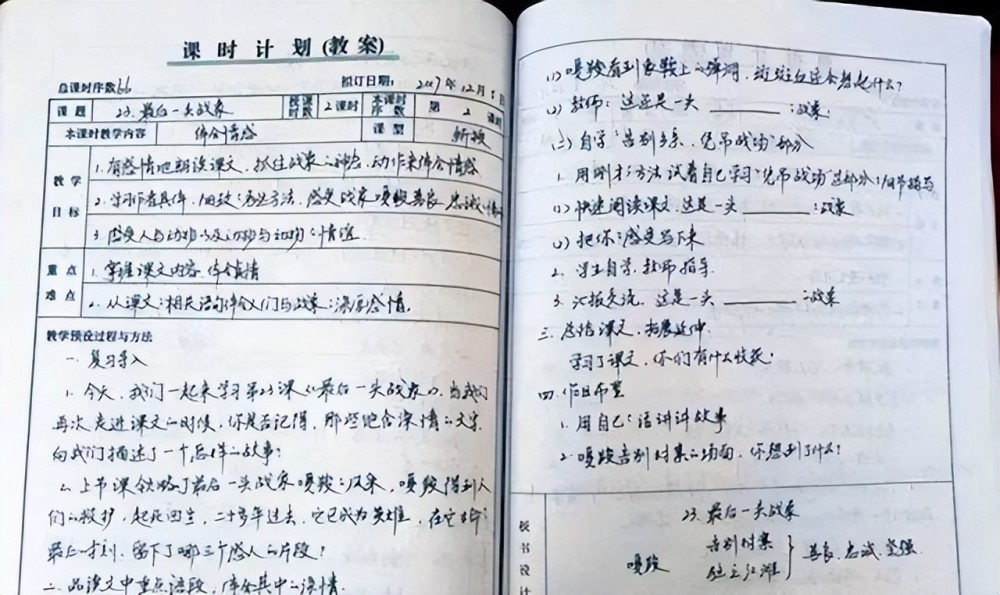 课时计划(教案)
总课时序数66 拟订日期: 2017年12月5日
课题 23.最后一头战象 授课时数 2课时 本课时序数 第2课时
本课时教学内容 体会情感 课型 新授
教学目标
1.有感情地朗读课文,抓住战象的神态,动作来体会情感
2.学习作者具体,细致的写法方法,感受战象嘎羧善良、忠诚
3.感受人与动物以及动物与动物的情谊.
重点难点
1.掌握课文内容,体会情
2.从课文的相关语句体会人们与战象的深厚感情.
教学预设过程与方法
一.复习导入
1.今天,我们一起来学习第23课《最后一头战象》,当我们
再次走进课文的时候,你是否记得,那些饱含深情的文字
向我们描述了一个怎样的故事?
2.上节课领略了最后一头战象嘎羧的风采,嘎羧得到人
们的救护,起死回生,二十多年过去,它已成为英雄,在它生命
最后一刻,留下了哪三个感人的片段?
二.品课文中重点语段,体会其中的深情.
(1)嘎羧看到象鞍上的弹洞,斑斑血迹会想起什么?
(2)教师:这还是一头 的战象.
(三)自学"告别乡亲、凭吊战场"部分
1.用刚才的方法试着自己学习"凭吊战场"这部分的细节描写
(1)快速阅读课文这是一头 的战象
(2)把你的感受写下来
2.学生自学,教师指导.
3.汇报交流,这是一头 的战象
三.总结课文,拓展延伸.
学习了课文,你们有什么收获?
四.作业布置
1.用自己的话讲讲故事
2.嘎羧告别村寨的场面,你想到了什么?
板书设计
23.最后一头战象
嘎羧 告别村寨 伫立江滩 } 善良、忠诚、坚强.